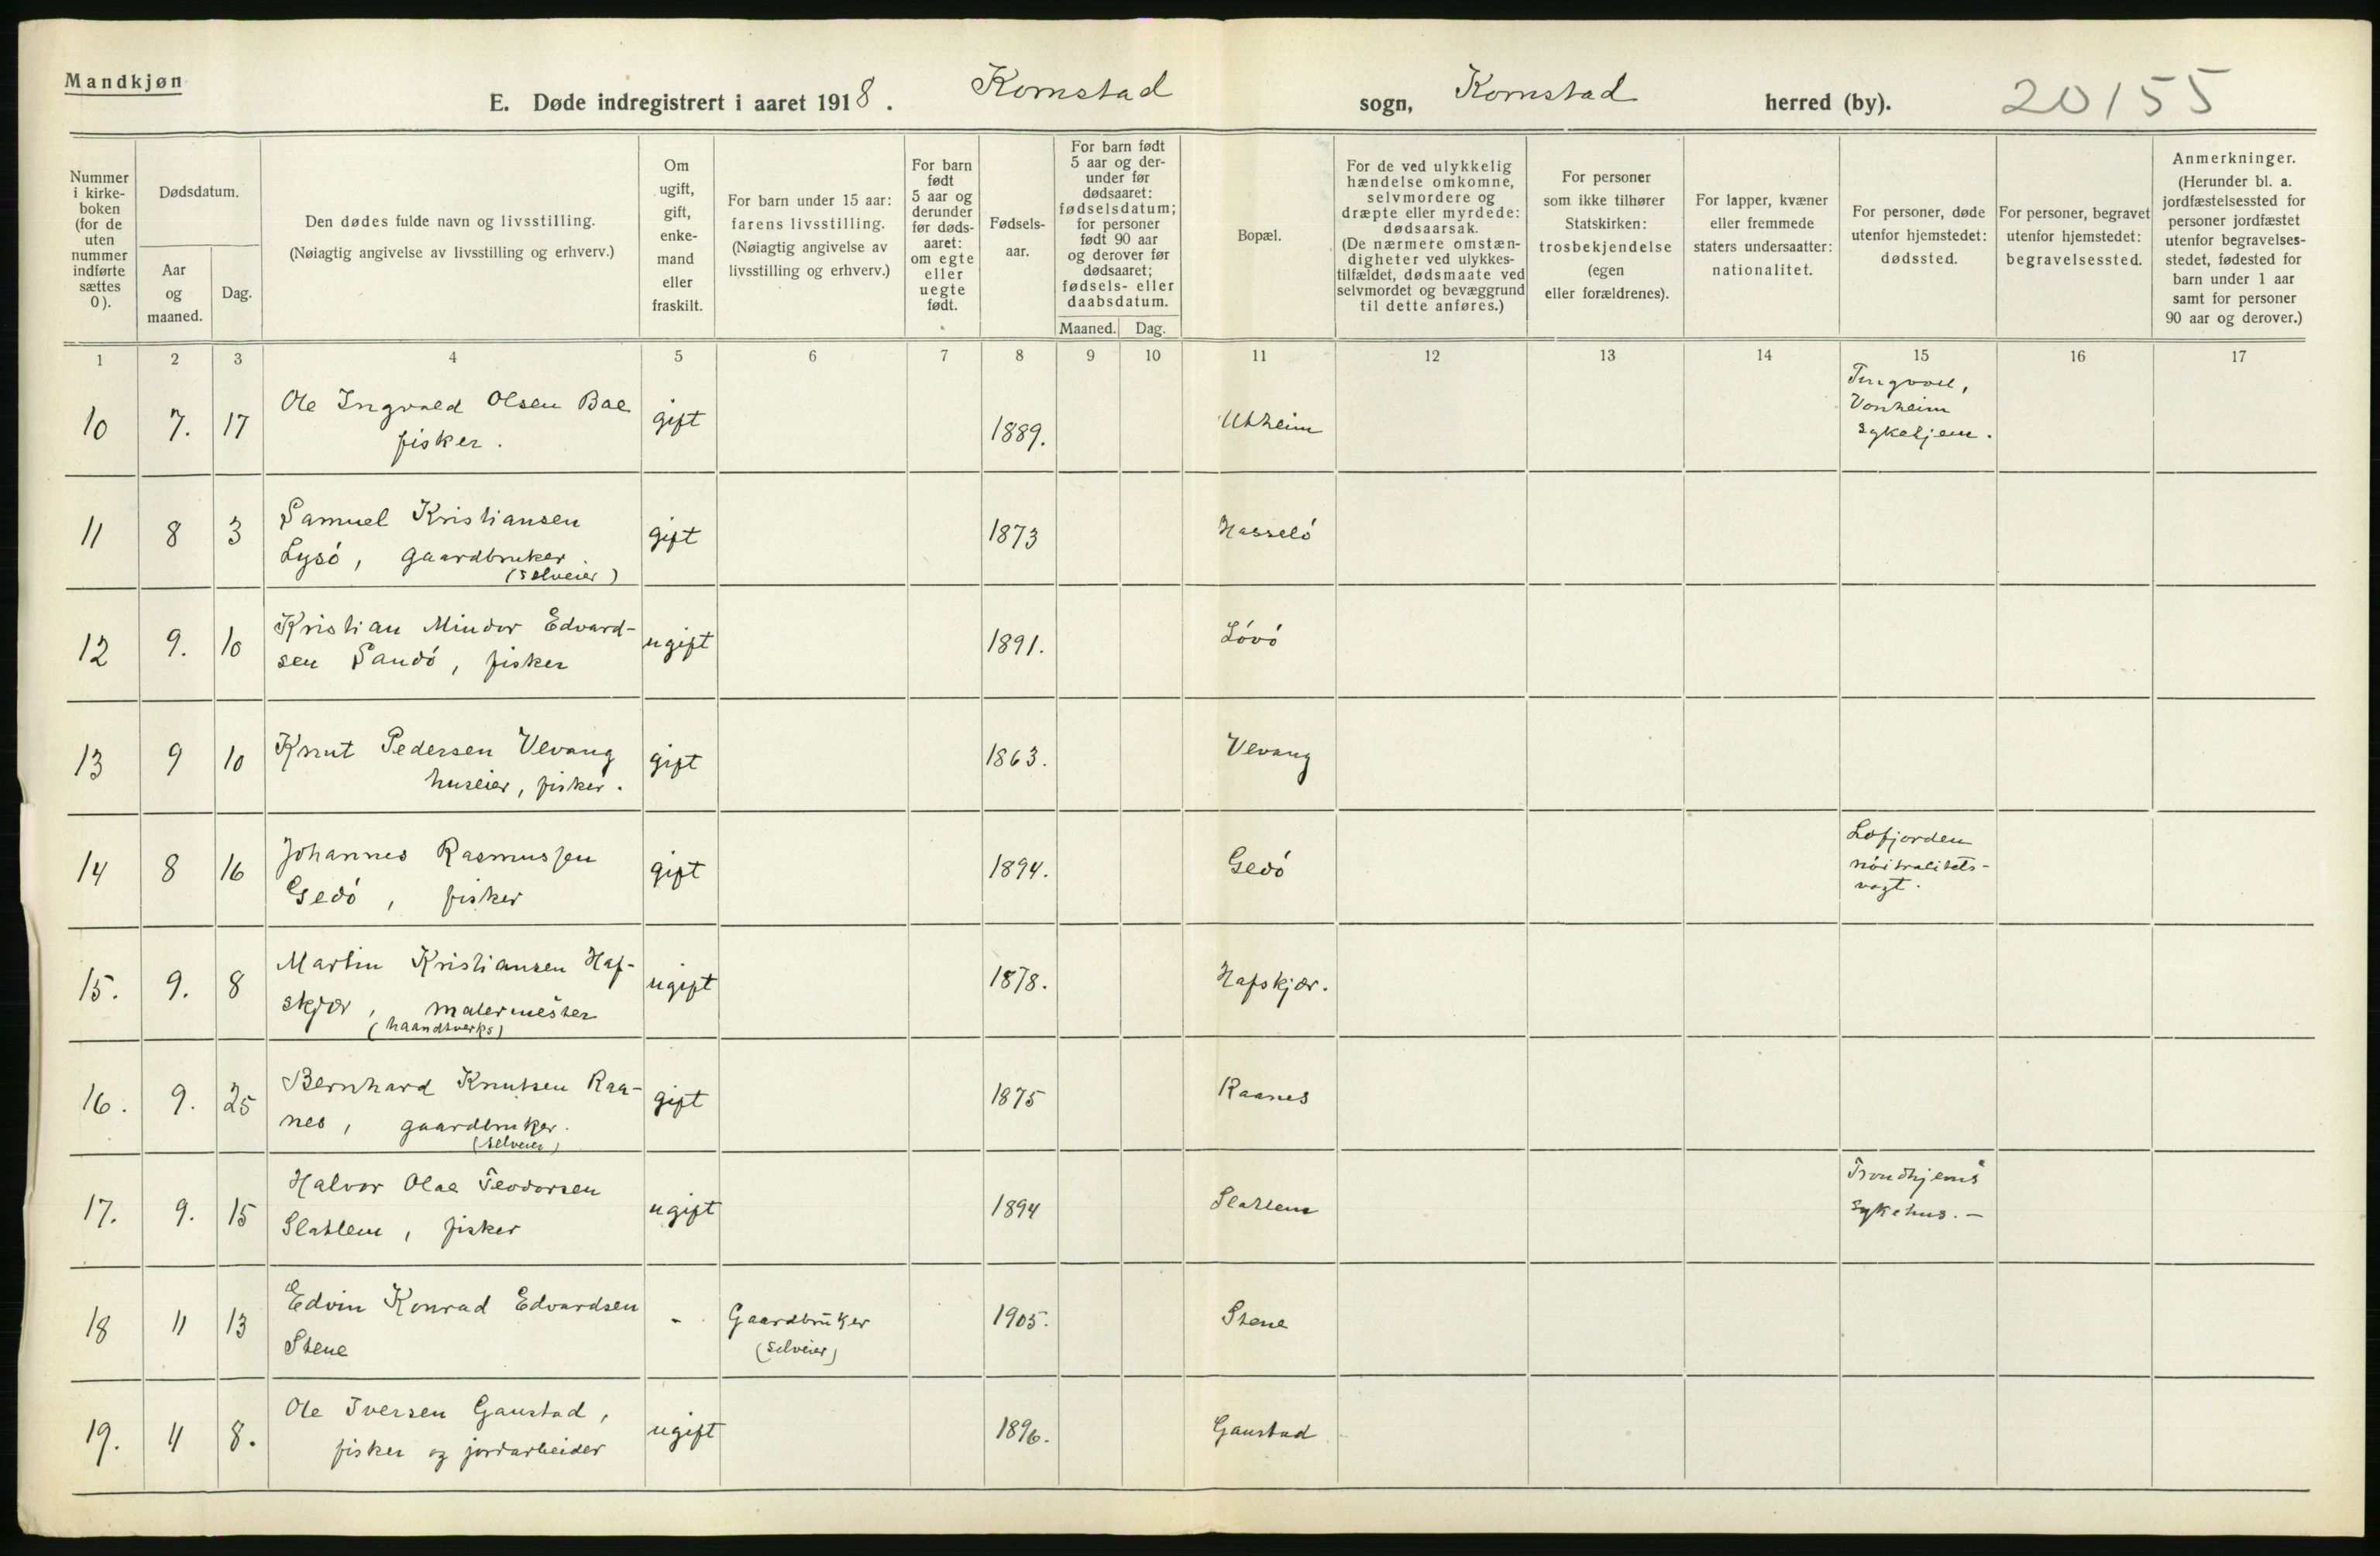 Mandkjøn
E. Døde indregistrert i aaret 1918. Kornstad sogn, Kornstad herred (by). 20155
Nummer
i kirke-
boken
(for de
uten
nummer
indførte
sættes
0).
Dødsdatum.
Aar
og
maaned.
Dag.
Den dødes fulde navn og livsstilling.
(Nøiagtig angivelse av livsstilling og erhverv.)
Om
ugift,
gift,
enke-
mand
eller
fraskilt.
For barn under 15 aar:
farens livsstilling.
(Nøiagtig angivelse av
livsstilling og erhverv.)
For barn
født
5 aar og
derunder
før døds-
aaret:
om egte
eller
uegte
født.
Fødsels-
aar.
For barn født
5 aar og der-
under før
dødsaaret:
fødselsdatum;
for personer
født 90 aar
og derover før
dødsaaret;
fødsels- eller
daabsdatum.
Maaned. Dag.
Bopæl.
For de ved ulykkelig
hændelse omkomne,
selvmordere og
dræpte eller myrdede:
dødsaarsak.
(De nærmere omstæn-
digheter ved ulykkes-
tilfældet, dødsmaate ved
selvmordet og bevæggrund
til dette anføres.)
For personer
som ikke tilhører
Statskirken:
trosbekjendelse
(egen
eller forældrenes).
For lapper, kvæner
eller fremmede
staters undersaatter:
nationalitet.
For personer, døde
utenfor hjemstedet:
dødssted.
For personer, begravet
utenfor hjemstedet:
begravelsessted.
Anmerkninger.
(Herunder bl. a.
jordfæstelsessted for
personer jordfæstet
utenfor begravelses-
stedet, fødested for
barn under 1 aar
samt for personer
90 aar og derover.)
1 2 3 4 5 6 7 8 9 10 11 12 13 14 15 16 17
10 7. 17 Ole Ingvald Olsen Bae
fisker.
gift 1889. Utheim
Tingvoll,
Vonheim
sykehjem.
11 8 3 Samuel Kristiansen
Lysó, gaardbruker
(selveier)
gift 1873 Hasseló
12 9. 10 Kristian Mindor Edvard-
sen Sandó, fisker
ugift 1891. Lóvó
13 9 10 Knut Pedersen Vevang
huseier, fisker.
gift 1863. Vevang
14 8 16 Johannes Rasmussen
Gedó, fisker
gift 1894. Gedó
Lofjorden
nóitralitets-
vagt.
15. 9. 8 Martin Kristiansen Haf-
skjær, malermester
(haandtverks)
ugift 1878. Hafskjær.
16. 9. 25 Bernhard Knutsen Raa-
nes, gaardbruker.
(selveier)
gift 1875 Raanes
17. 9. 15 Halvor Olae Teodorsen
Slatlem, fisker
ugift 1894 Slatlem
Trondhjems
sykehus. —
18 11 13 Edvin Konrad Edvardsen
Stene
- Gaardbruker
(selveier)
1905. Stene
19. 11 8. Ole Iversen Gaustad,
fisker og jordarbeider
ugift 1896. Gaustad